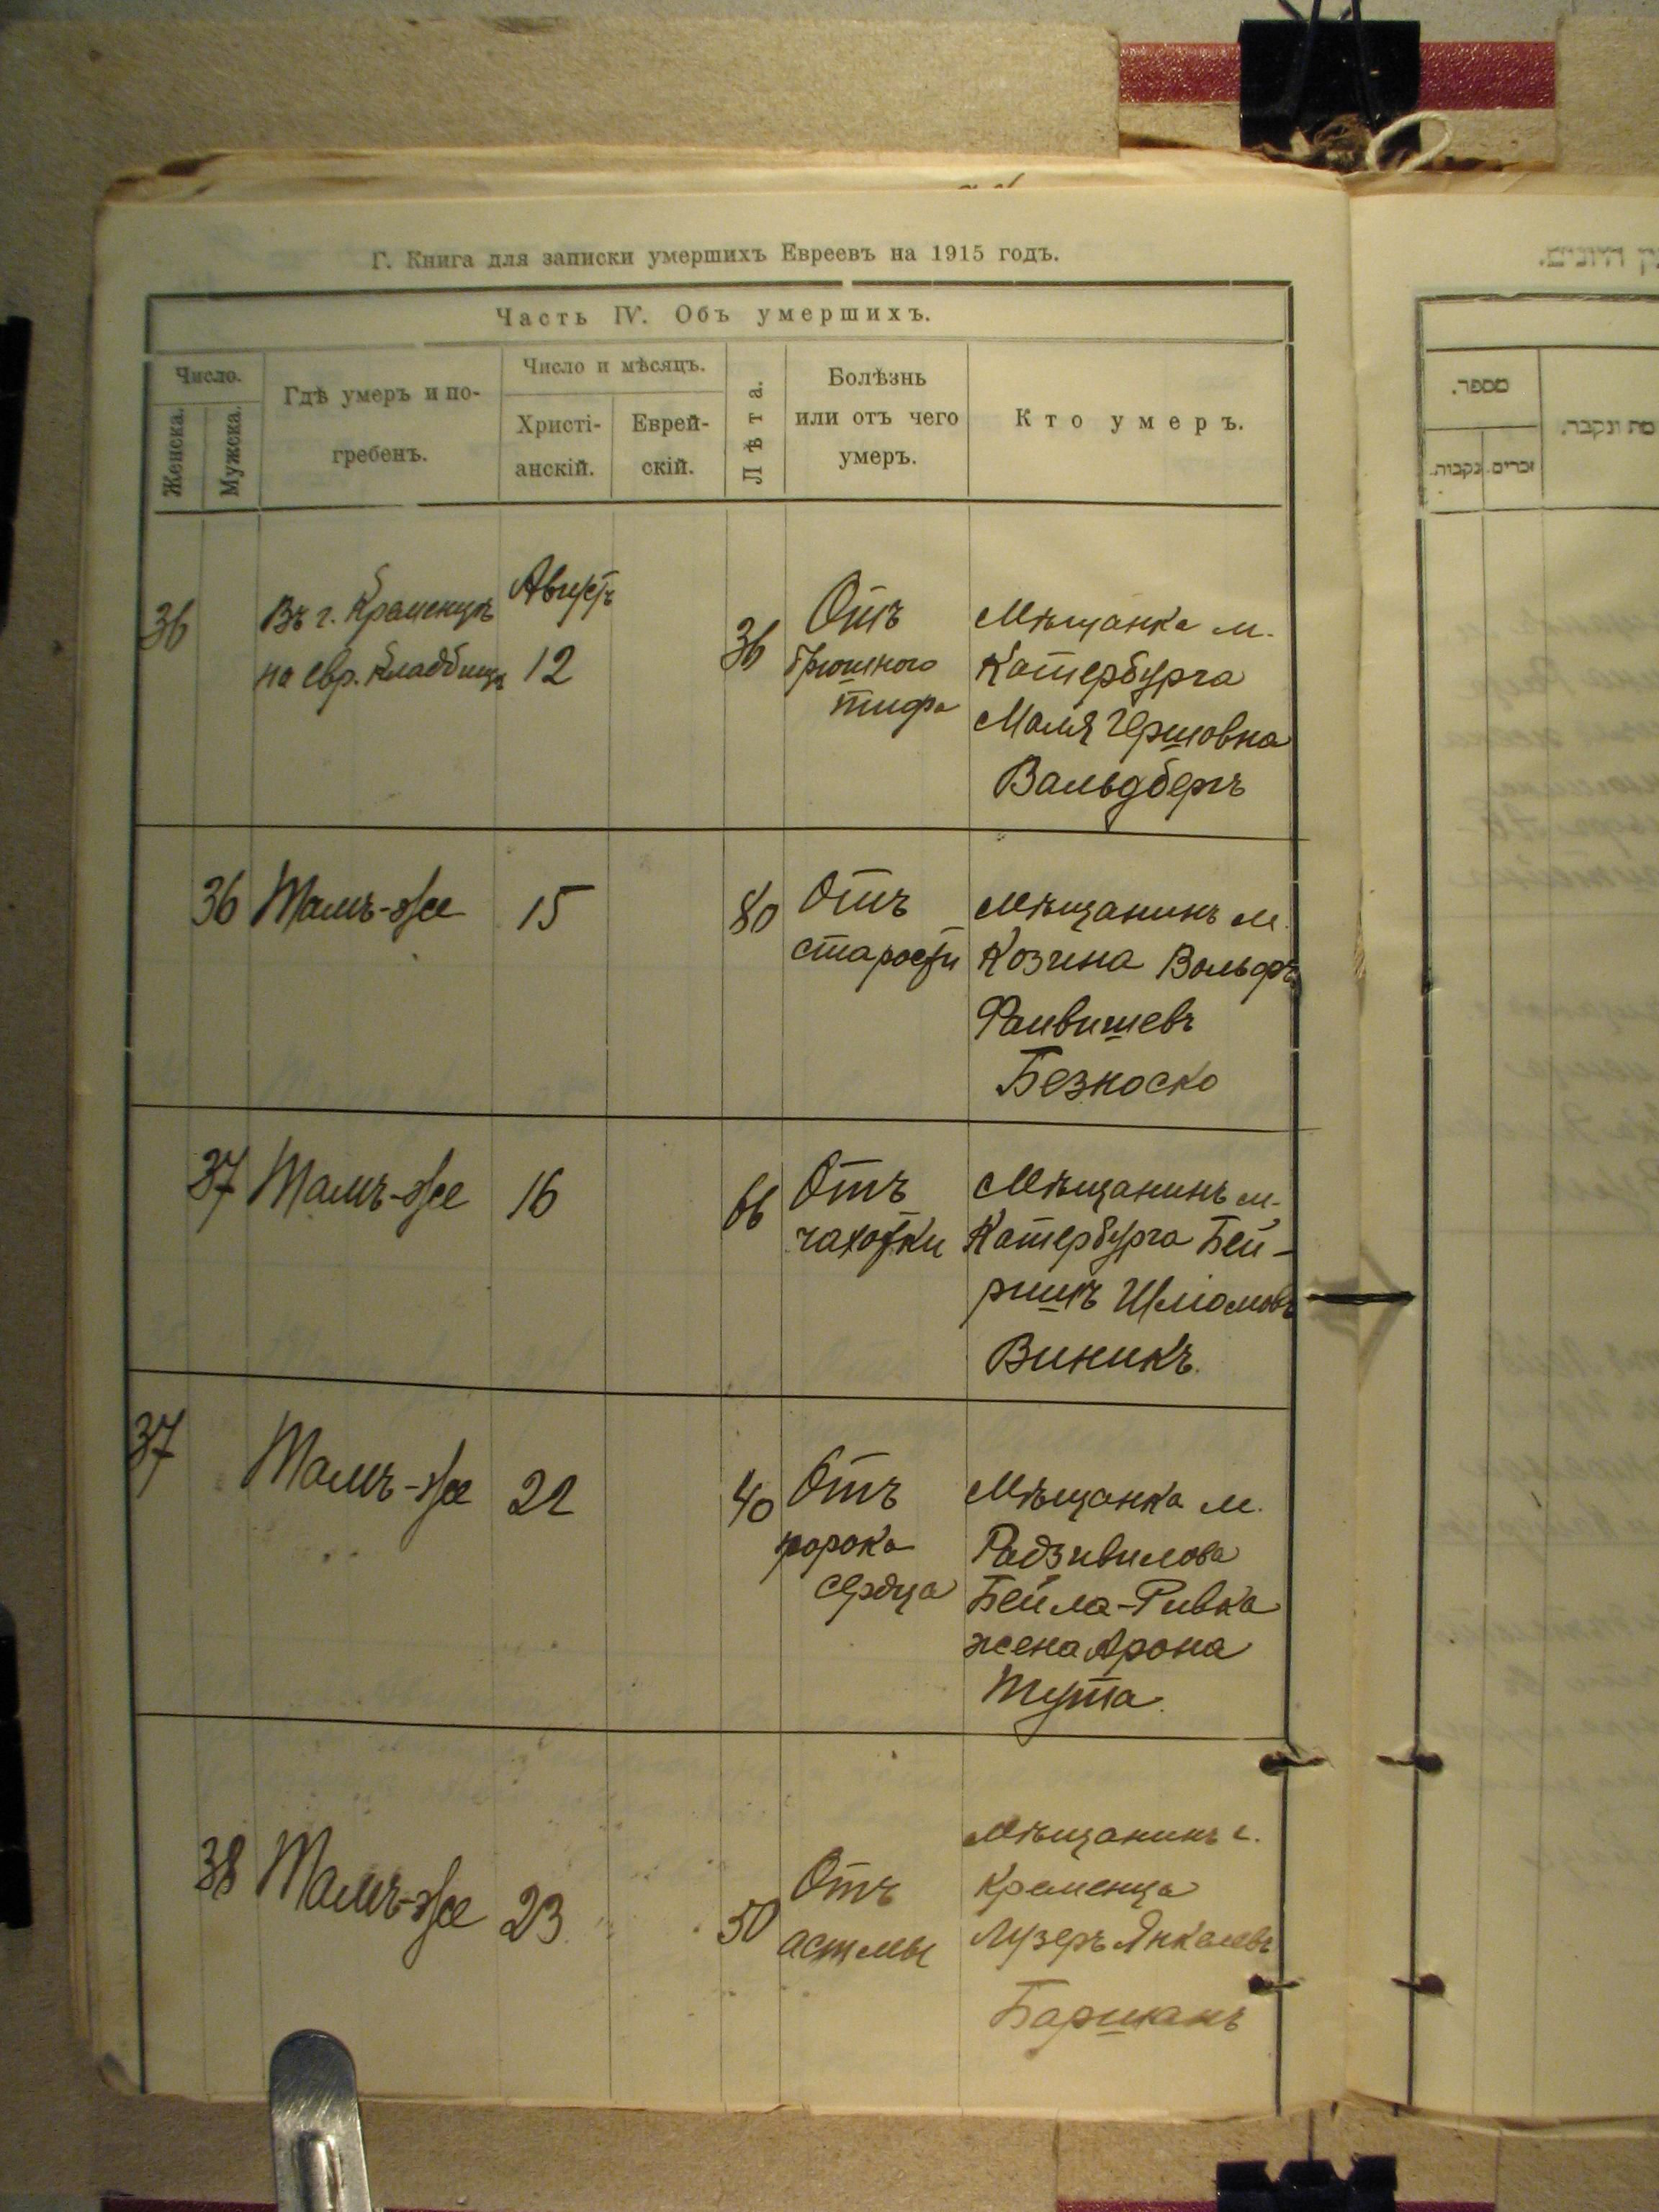 Г. Книга для записки умершихъ Евреевъ на 1915 годъ.
Часть IV. Объ умершихъ.
Число.
Женска.
Мужска.
Гдѣ умеръ и по-
гребенъ.
Число и мѣсяцъ.
Христі-
анскій.
Еврей-
скій.
Лѣта.
Болѣзнь
или отъ чего
умеръ.
Кто умеръ.
36
Въ г. Кременцѣ
на евр. кладбищѣ
Августъ
12
36
Отъ
брюшного
тифа
Мѣщанка м.
Катербурга
Маля Гершовна
Вальдбергъ
36
Тамъ-же
15
80
Отъ
старости
Мѣщанинъ м.
Козина Вольфъ
Фаивишевъ
Безноско
37
Тамъ-же
16
66
Отъ
чахотки
Мѣщанинъ м.
Катербурга Бей-
ришъ Шлiомовъ
Виникъ.
37
Тамъ-же
22
40
Отъ
порока
сердца
Мѣщанка м.
Радзивилова
Бейла-Ривка
жена Арона
Тута.
38
Тамъ-же
23
50
Отъ
астмы
Мѣщанинъ г.
Кременца
Лузеръ Янкелевъ
Баршакъ
מספר.
זכרים.
נקבות.
ונקבר.